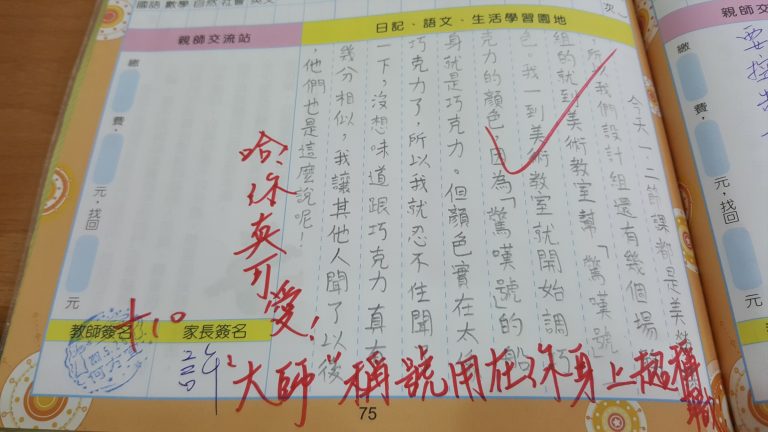 國語 數學 自然 社會 英文
日記、語文、生活學習園地
親師交流站
今天一、二節課都是美
所以我們設計組還有幾個場
組的就到美術教室幫「驚嘆號
色,我一到美術教室就開始調巧
克力的顏色,因為「驚嘆號」的
身就是巧克力。個顏色實在太
巧克力了,所以我就忍不住聞
一下,沒想味道跟巧克力真
幾分相似,我讓其他人聞了以後
,他們也是這麼說呢!
哈!你真可愛!
繳 費,
元,找回
元
教師簽名
家長簽名
+10
"大師"稱號用在你身上挺稱職
75
親師交
繳 費,
元,找回
元